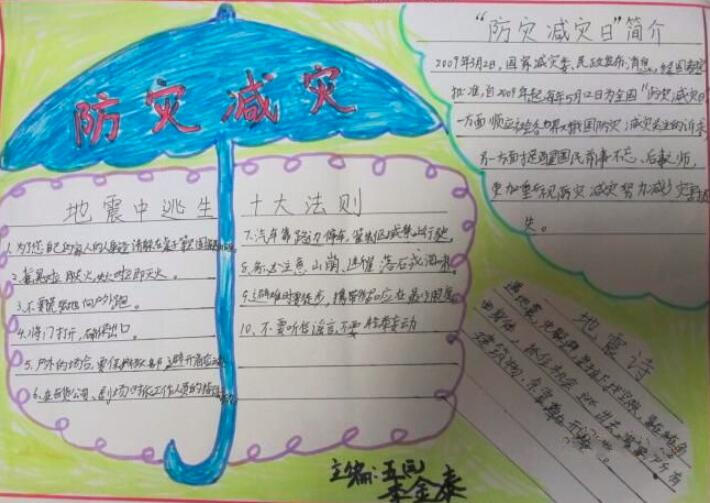 防灾减灾
“防灾减灾日”简介
2009年3月2日，国家减灾委、民政部发布消息，经国务院
批准，自2009年起每年5月12日为全国“防灾减灾日
一方面顺应社会各界对我国防灾减灾关注的诉求
另一方面提醒国民前事不忘、后事之师，
更加重视防灾减灾努力减少灾害损
失。
地震中逃生十大法则
1.为了您自己和家人的人身安全请躲在桌子等坚固家具
3.不要慌张地向户外跑。
4.将门打开，确保出口。
5.户外的场合，要保护好头部，避开危险
6.在百货公司、剧场时依工作人员的指示
7.汽车靠路边停车，管制区域禁止行驶。
8.务必注意山崩、
9.避难时要徒步，携带物品应在最少限度。
10.不要听信谣言，不要轻举妄动
地震诗
主编：王远
李金泰